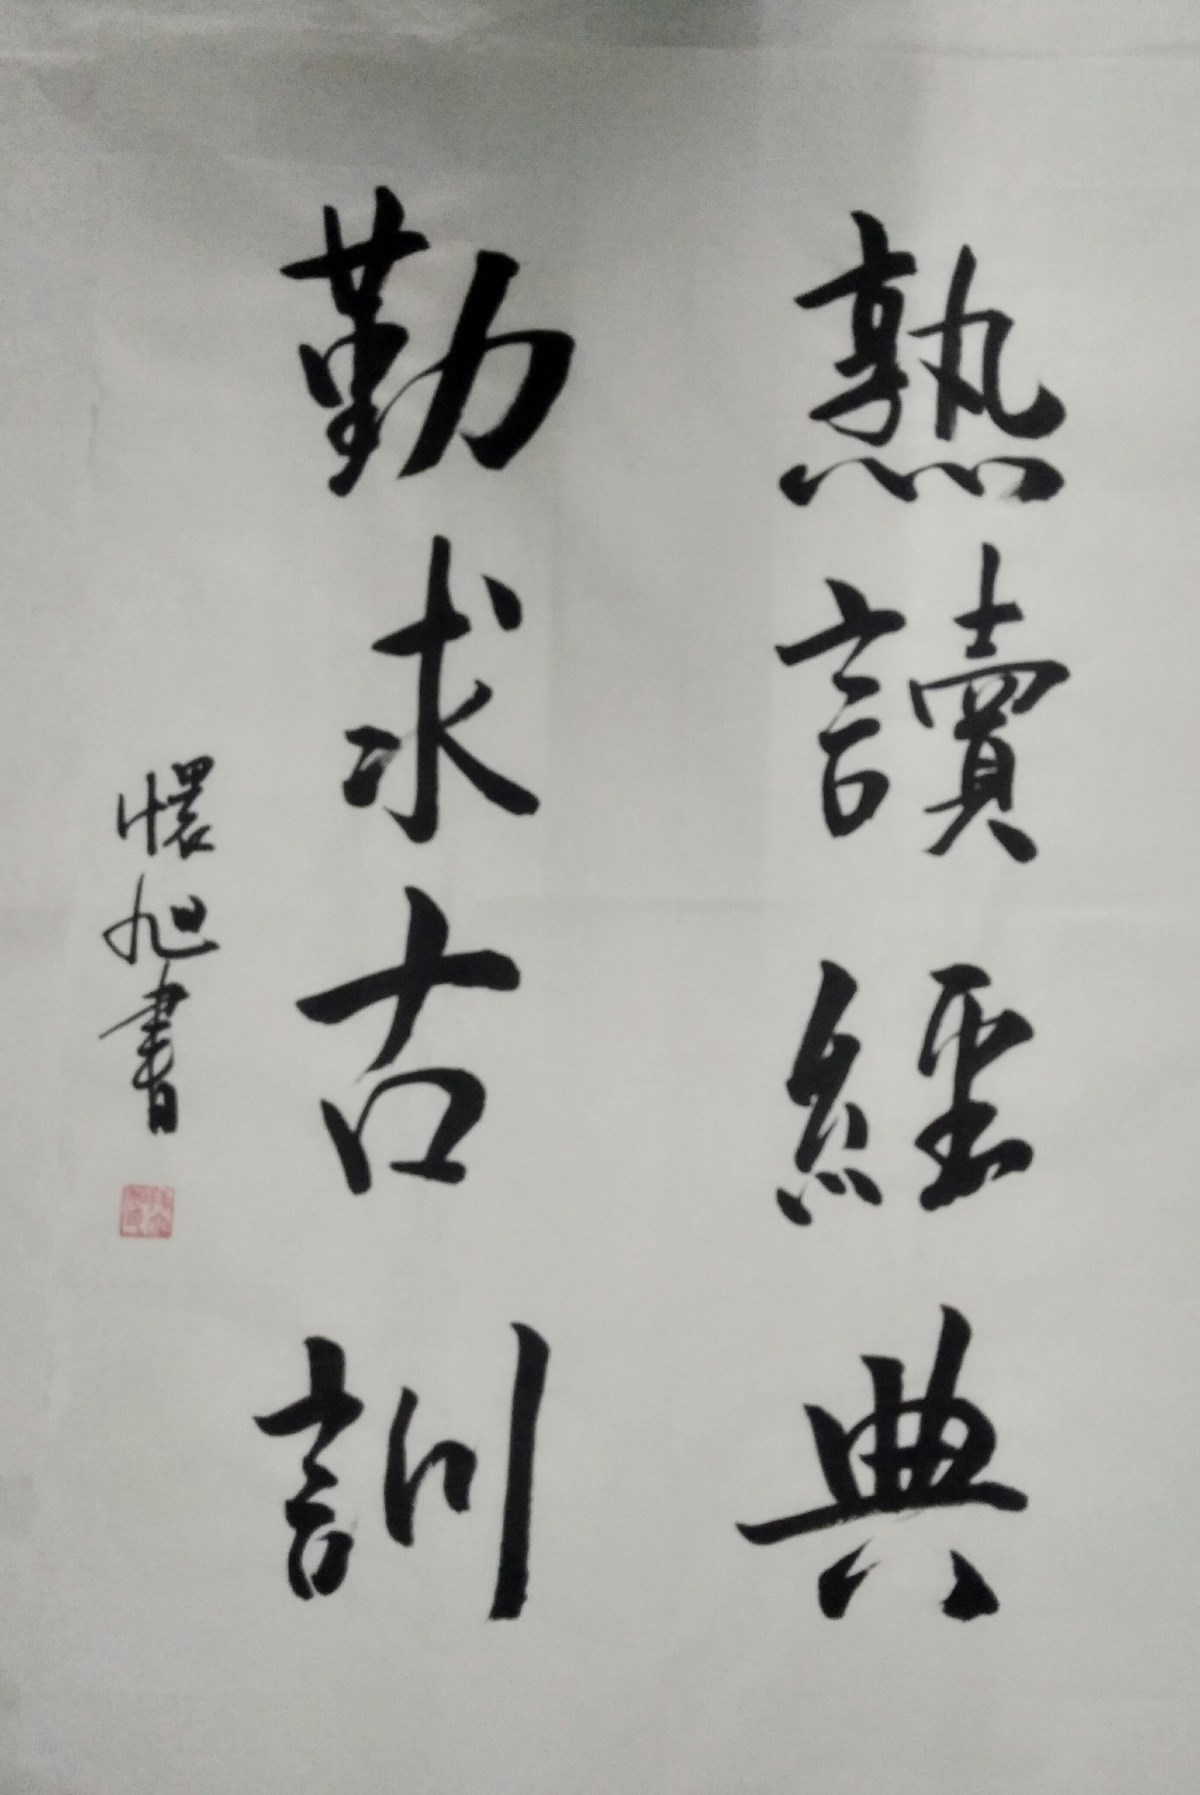 熟讀經典
勤求古訓
懷旭書